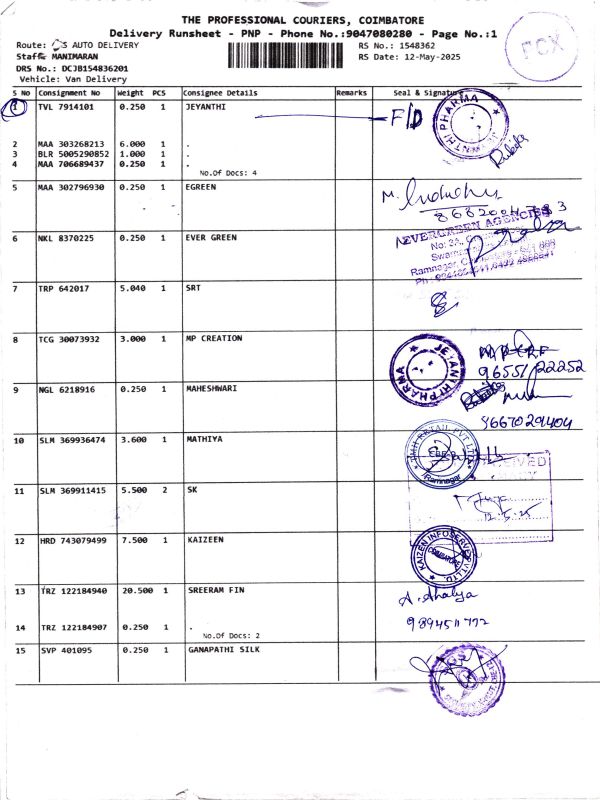 THE PROFESSIONAL COURIERS, COIMBATORE
Delivery Runsheet - PNP - Phone No.:9047080280 - Page No.:1
Route: S AUTO DELIVERY
RS No.: 1548362
Staff: MANIMARAN
RS Date: 12-May-2025
DRS No.: DCJB154836201
Vehicle: Van Delivery
FCX
S No Consignment No Weight PCS Consignee Details Remarks Seal & Signature
1 TVL 7914101 0.250 1 JEYANTHI F/D
JEYANTHI PHARMA
2 MAA 303268213 6.000 1 .
3 BLR 5005290852 1.000 1 .
4 MAA 706689437 0.250 1 .
No.Of Docs: 4
5 MAA 302796930 0.250 1 EGREEN
6 NKL 8370225 0.250 1 EVER GREEN
EVERGREEN AGENCIES
7 TRP 642017 5.040 1 SRT
8 TCG 30073932 3.000 1 MP CREATION
JEYANTHI PHARMA
96551 22252
9 NGL 6218916 0.250 1 MAHESHWARI
9667029404
10 SLM 369936474 3.600 1 MATHIYA
RETAIL PVT LTD
Ramnagar
11 SLM 369911415 5.500 2 SK
RECEIVED
12.5.25
12 HRD 743079499 7.500 1 KAIZEEN
KAIZEN INFOSERVE PVT LTD.
COIMBATORE
13 TRZ 122184940 20.500 1 SREERAM FIN
A. Ahalya
9894511772
14 TRZ 122184907 0.250 1 .
No.Of Docs: 2
15 SVP 401095 0.250 1 GANAPATHI SILK